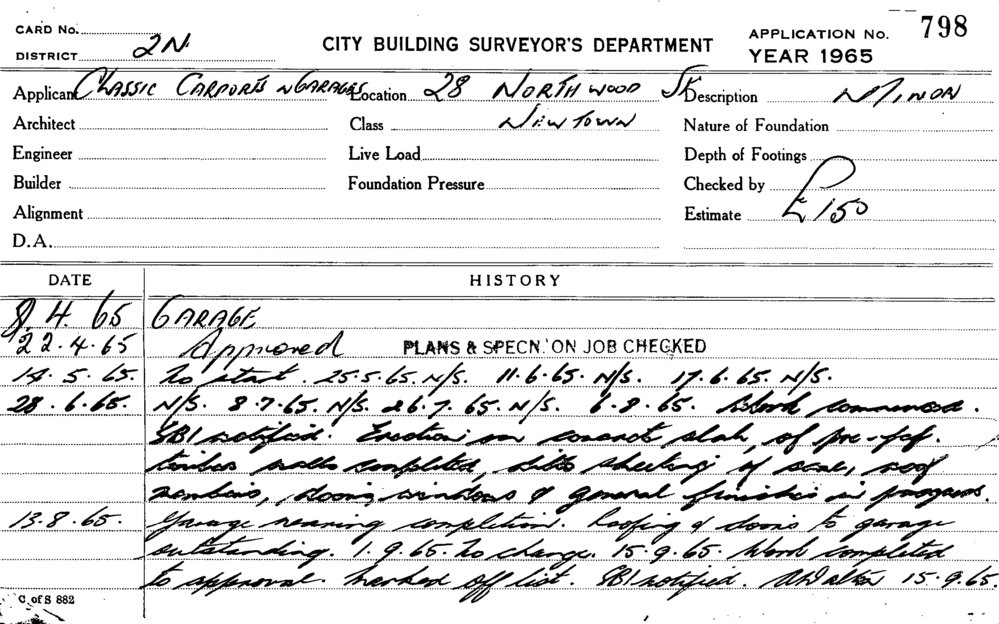 CARD No.
DISTRICT 2N.
CITY BUILDING SURVEYOR'S DEPARTMENT
APPLICATION No. 798
YEAR 1965
Applicant CLASSIC CARPORTS & GARAGES Location 28 NORTHWOOD St Description MINOR
Architect Class NEWTOWN Nature of Foundation
Engineer Live Load Depth of Footings
Builder Foundation Pressure Checked by
Alignment Estimate £150
D.A.
DATE HISTORY
8.4.65 GARAGE
22.4.65 Approved PLANS & SPECN. ON JOB CHECKED
14.5.65. No start. 25.5.65. N/S. 11.6.65. N/S. 17.6.65. N/S.
28.6.65. N/S. 8.7.65. N/S. 26.7.65. N/S. 6.8.65. Work commenced.
SBI notified. Erection on concrete slab, of pre-fab.
timber walls completed, ditto sheeting of same, roof
members, doors, windows & general finishes in progress.
13.8.65. Garage nearing completion. Roofing & doors to garage
outstanding. 1.9.65. No change. 15.9.65. Work completed
to approval. Marked off list. SBI notified. 15.9.65.
C. of S 882